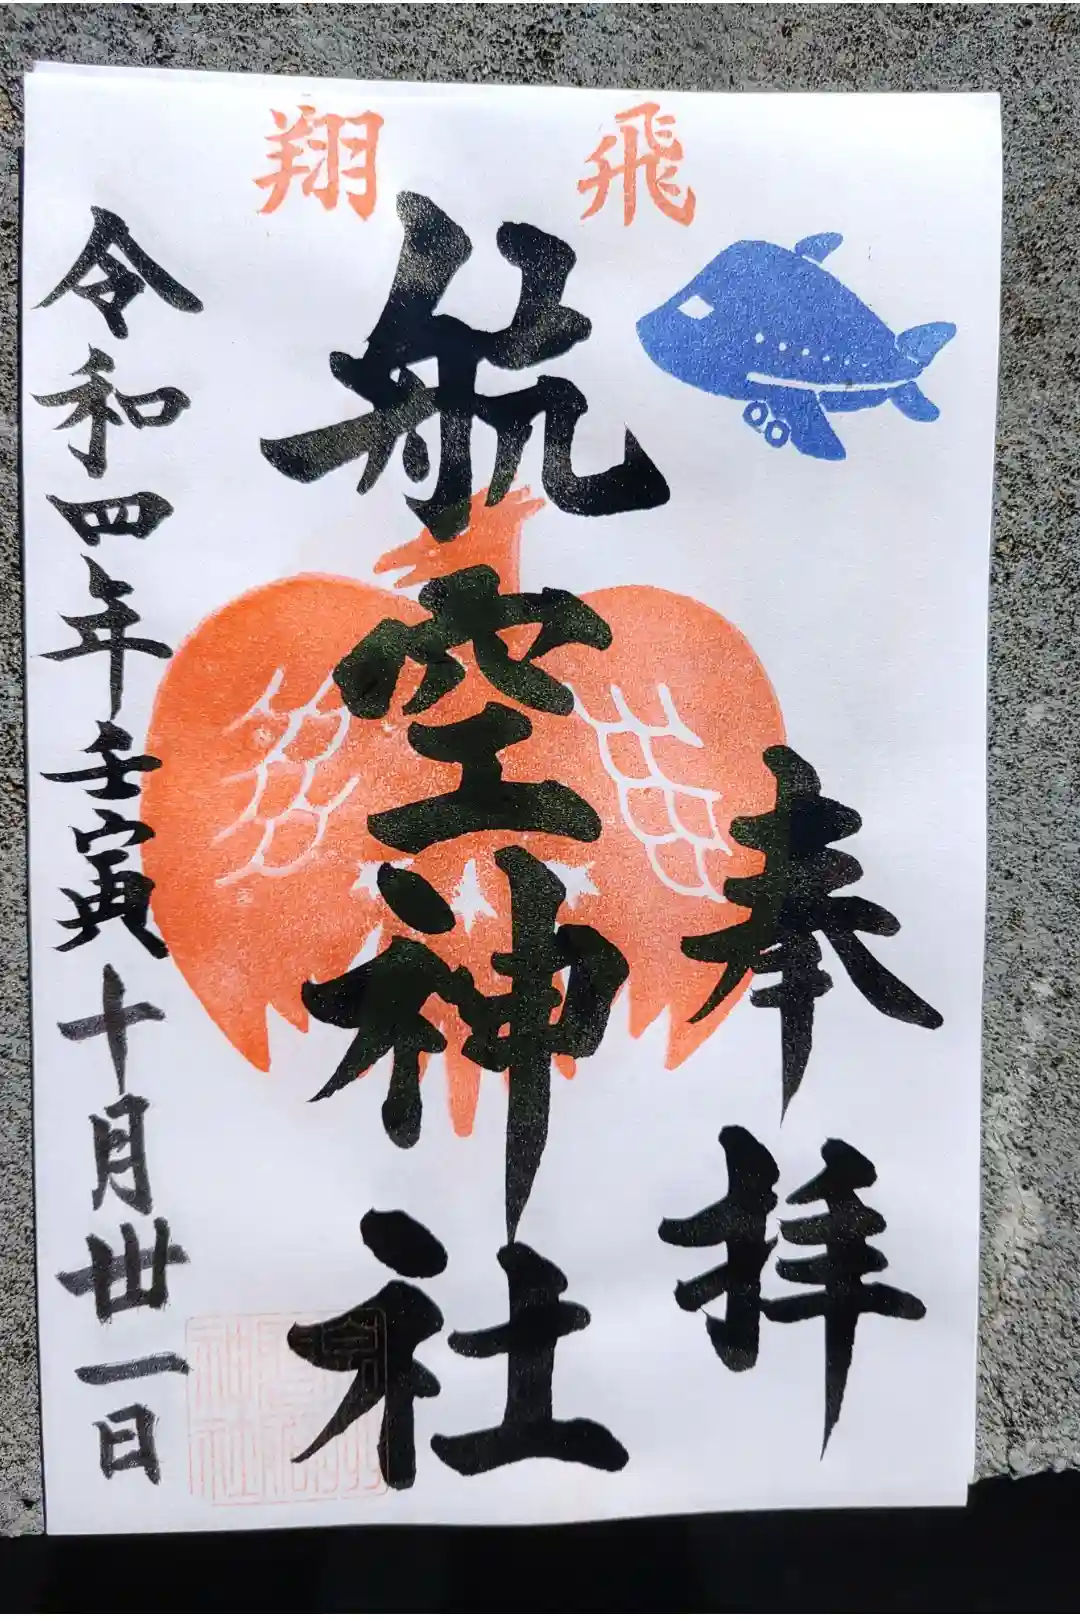 飛翔
奉拝
航空神社
令和四年壬寅十月丗一日